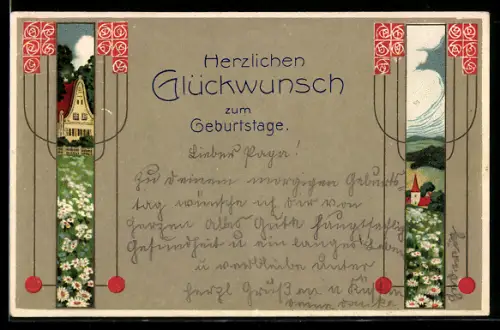 Herzlichen
Glückwunsch
zum
Geburtstage.
Lieber Papa!
Zu Deinem morgigen Geburts-
tag wünsche ich Dir von
Herzen alles Gute hauptsächlich
Gesundheit u ein langes Leben
u verbleibe unter
herzl Grüßen u Küssen
Deine